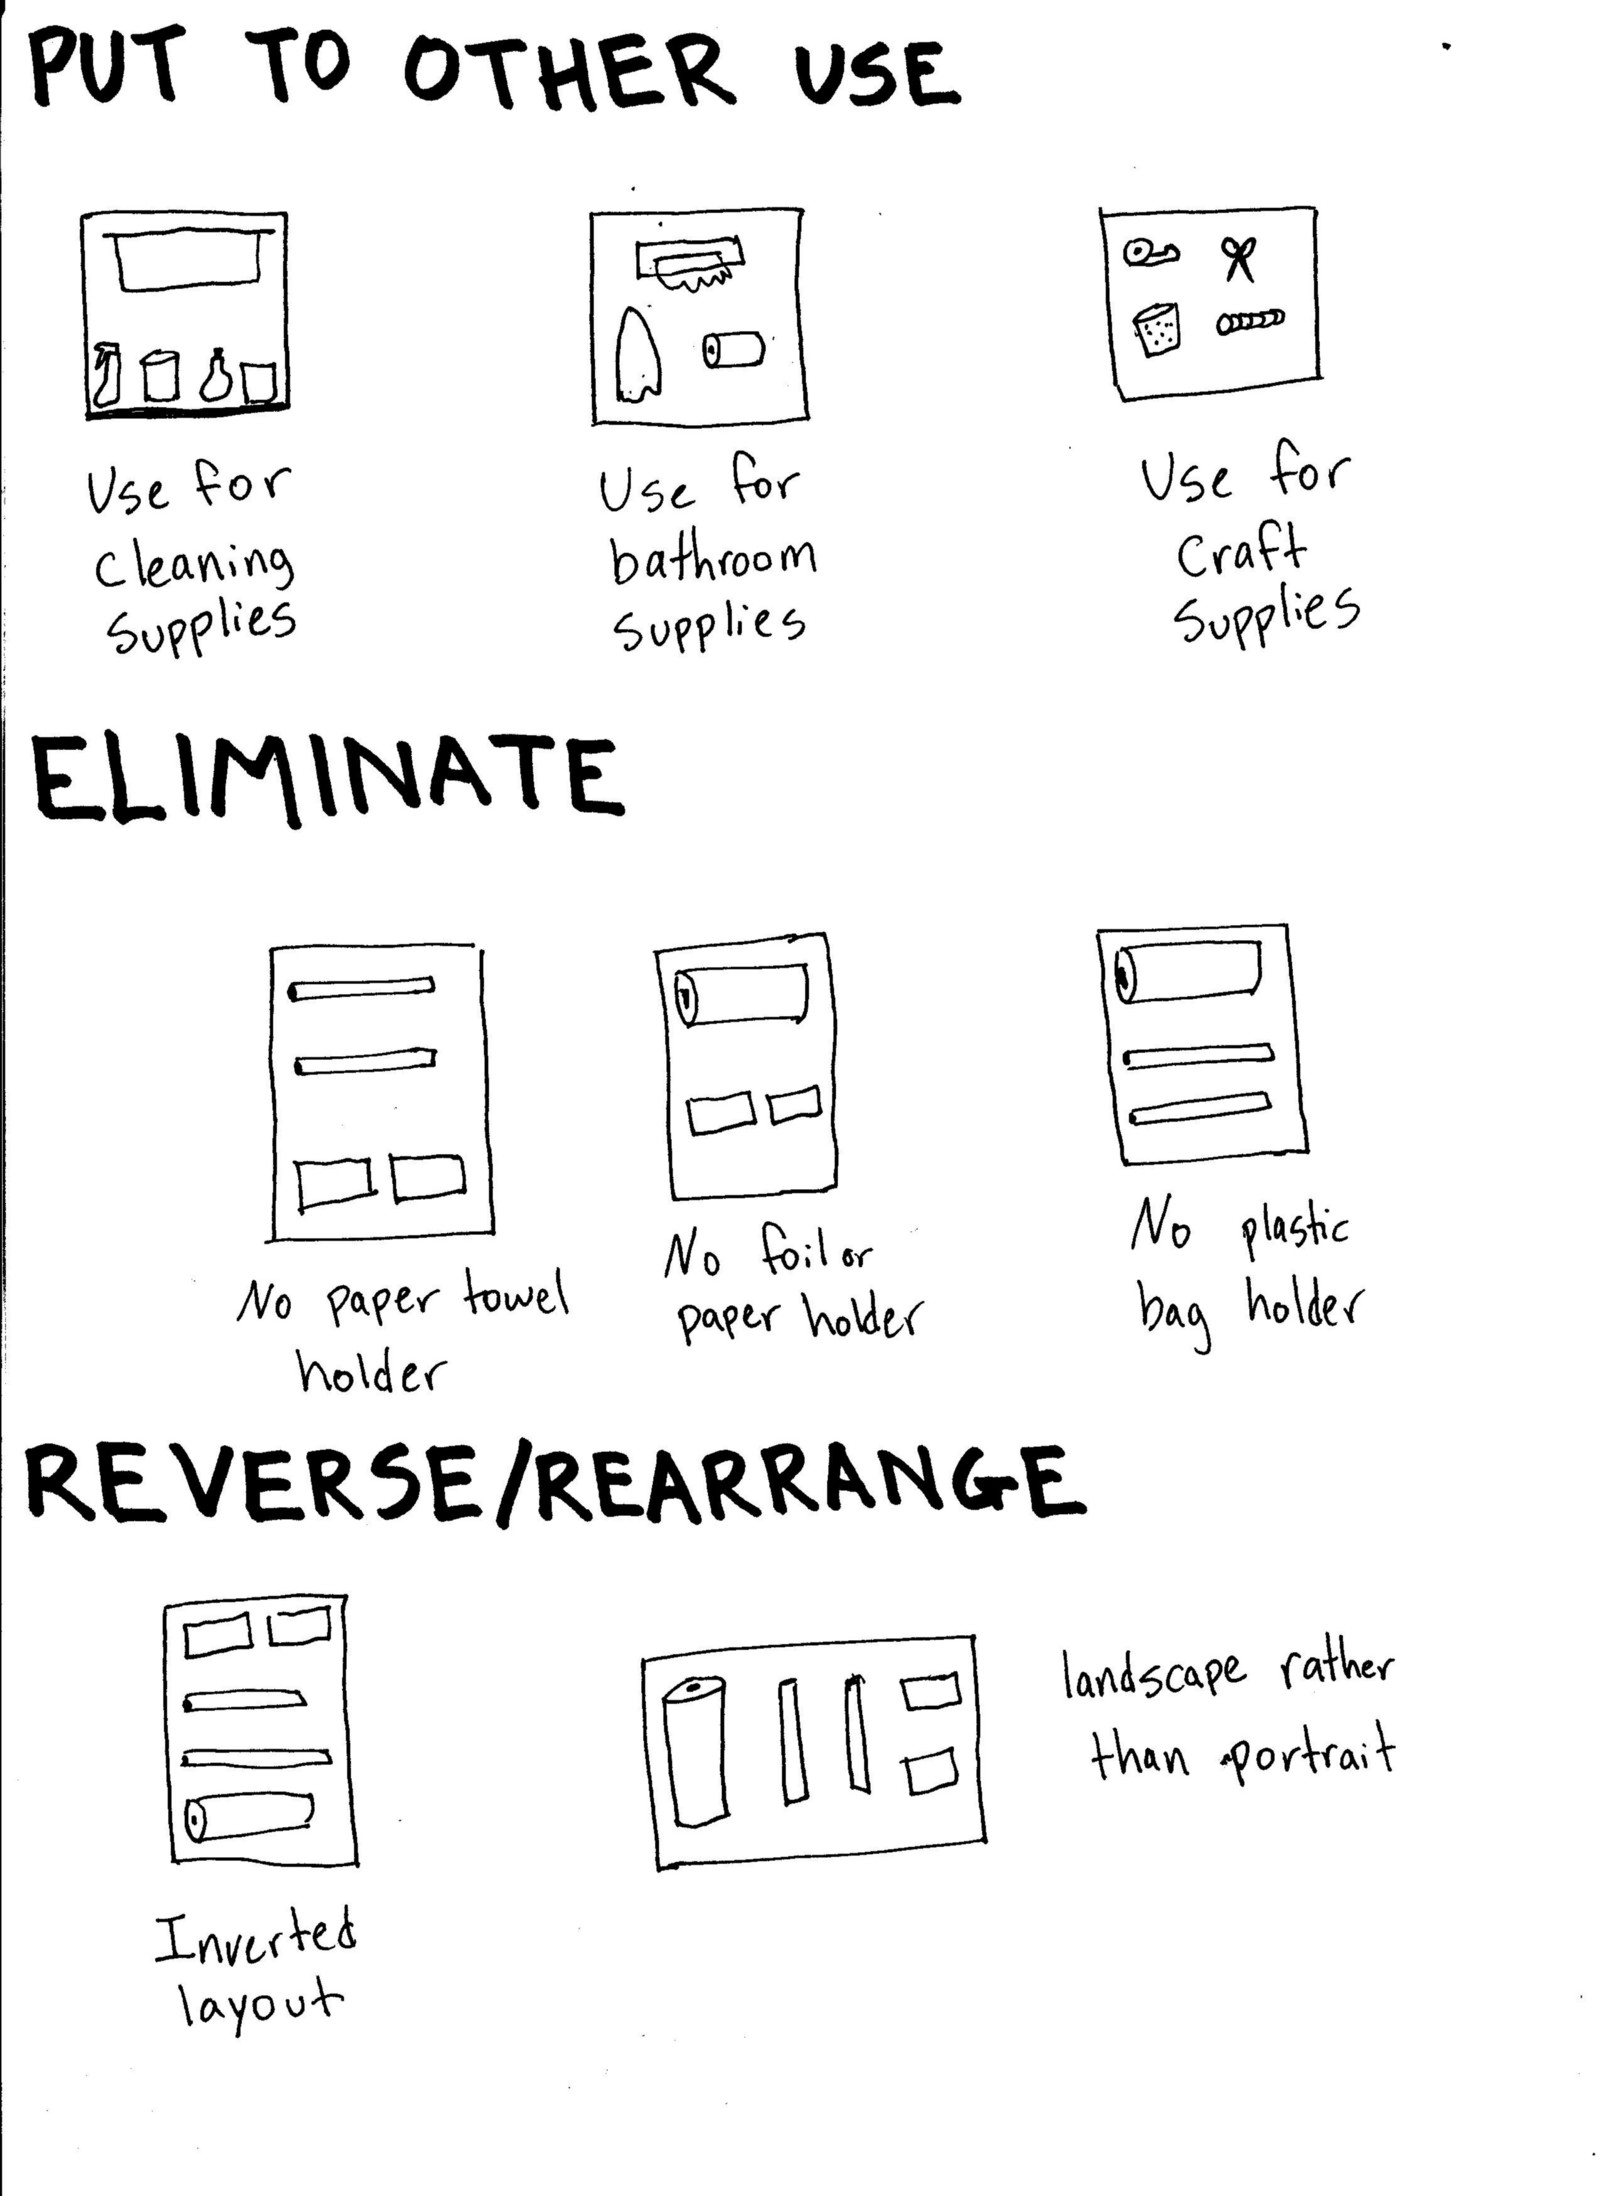 PUT TO OTHER USE
Use for
cleaning
supplies
Use for
bathroom
supplies
Use for
Craft
Supplies
ELIMINATE
No paper towel
holder
No foil or
paper holder
No plastic
bag holder
REVERSE/REARRANGE
Inverted
layout
landscape rather
than portrait